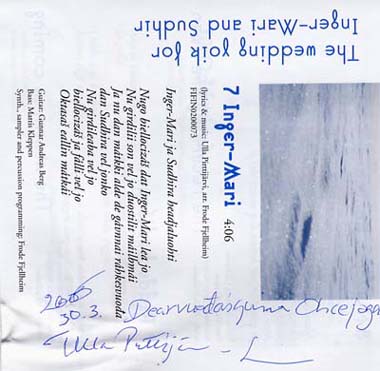 The wedding yoik for
Inger-Mari and Sudhir
7 Inger-Mari 4:06
(lyrics & music: Ulla Pirttijärvi, arr. Frode Fjellheim)
FIFIN0200073
Inger-Mari ja Sudhira headjaluohti
Nugo biellocizáš dat Inger-Mari lea jo
Nu girdilii son vel jo duostilii máilbmái
Ja nu dan máikki alde de gávnnai ráhkesvuođa
dan Sudhira vel jonko
Nu girdileaba vel jo
biellocizáš ja fálli vel jo
Oktasaš eallin mátkái
Guitar: Gunnar Andreas Berg
Bass: Matis Kleppen
Synth., sampler and percussion programming: Frode Fjellheim
30.3.
Dearvvuođaiguin
Ulla Pirttijärvi